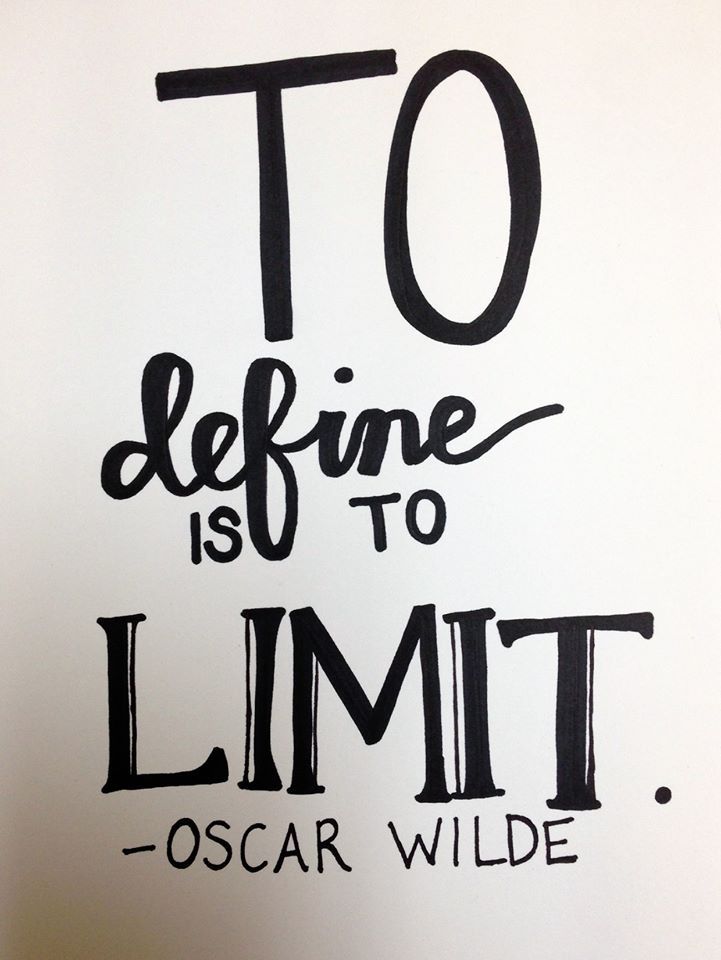 TO
define
IS TO
LIMIT.
-OSCAR WILDE